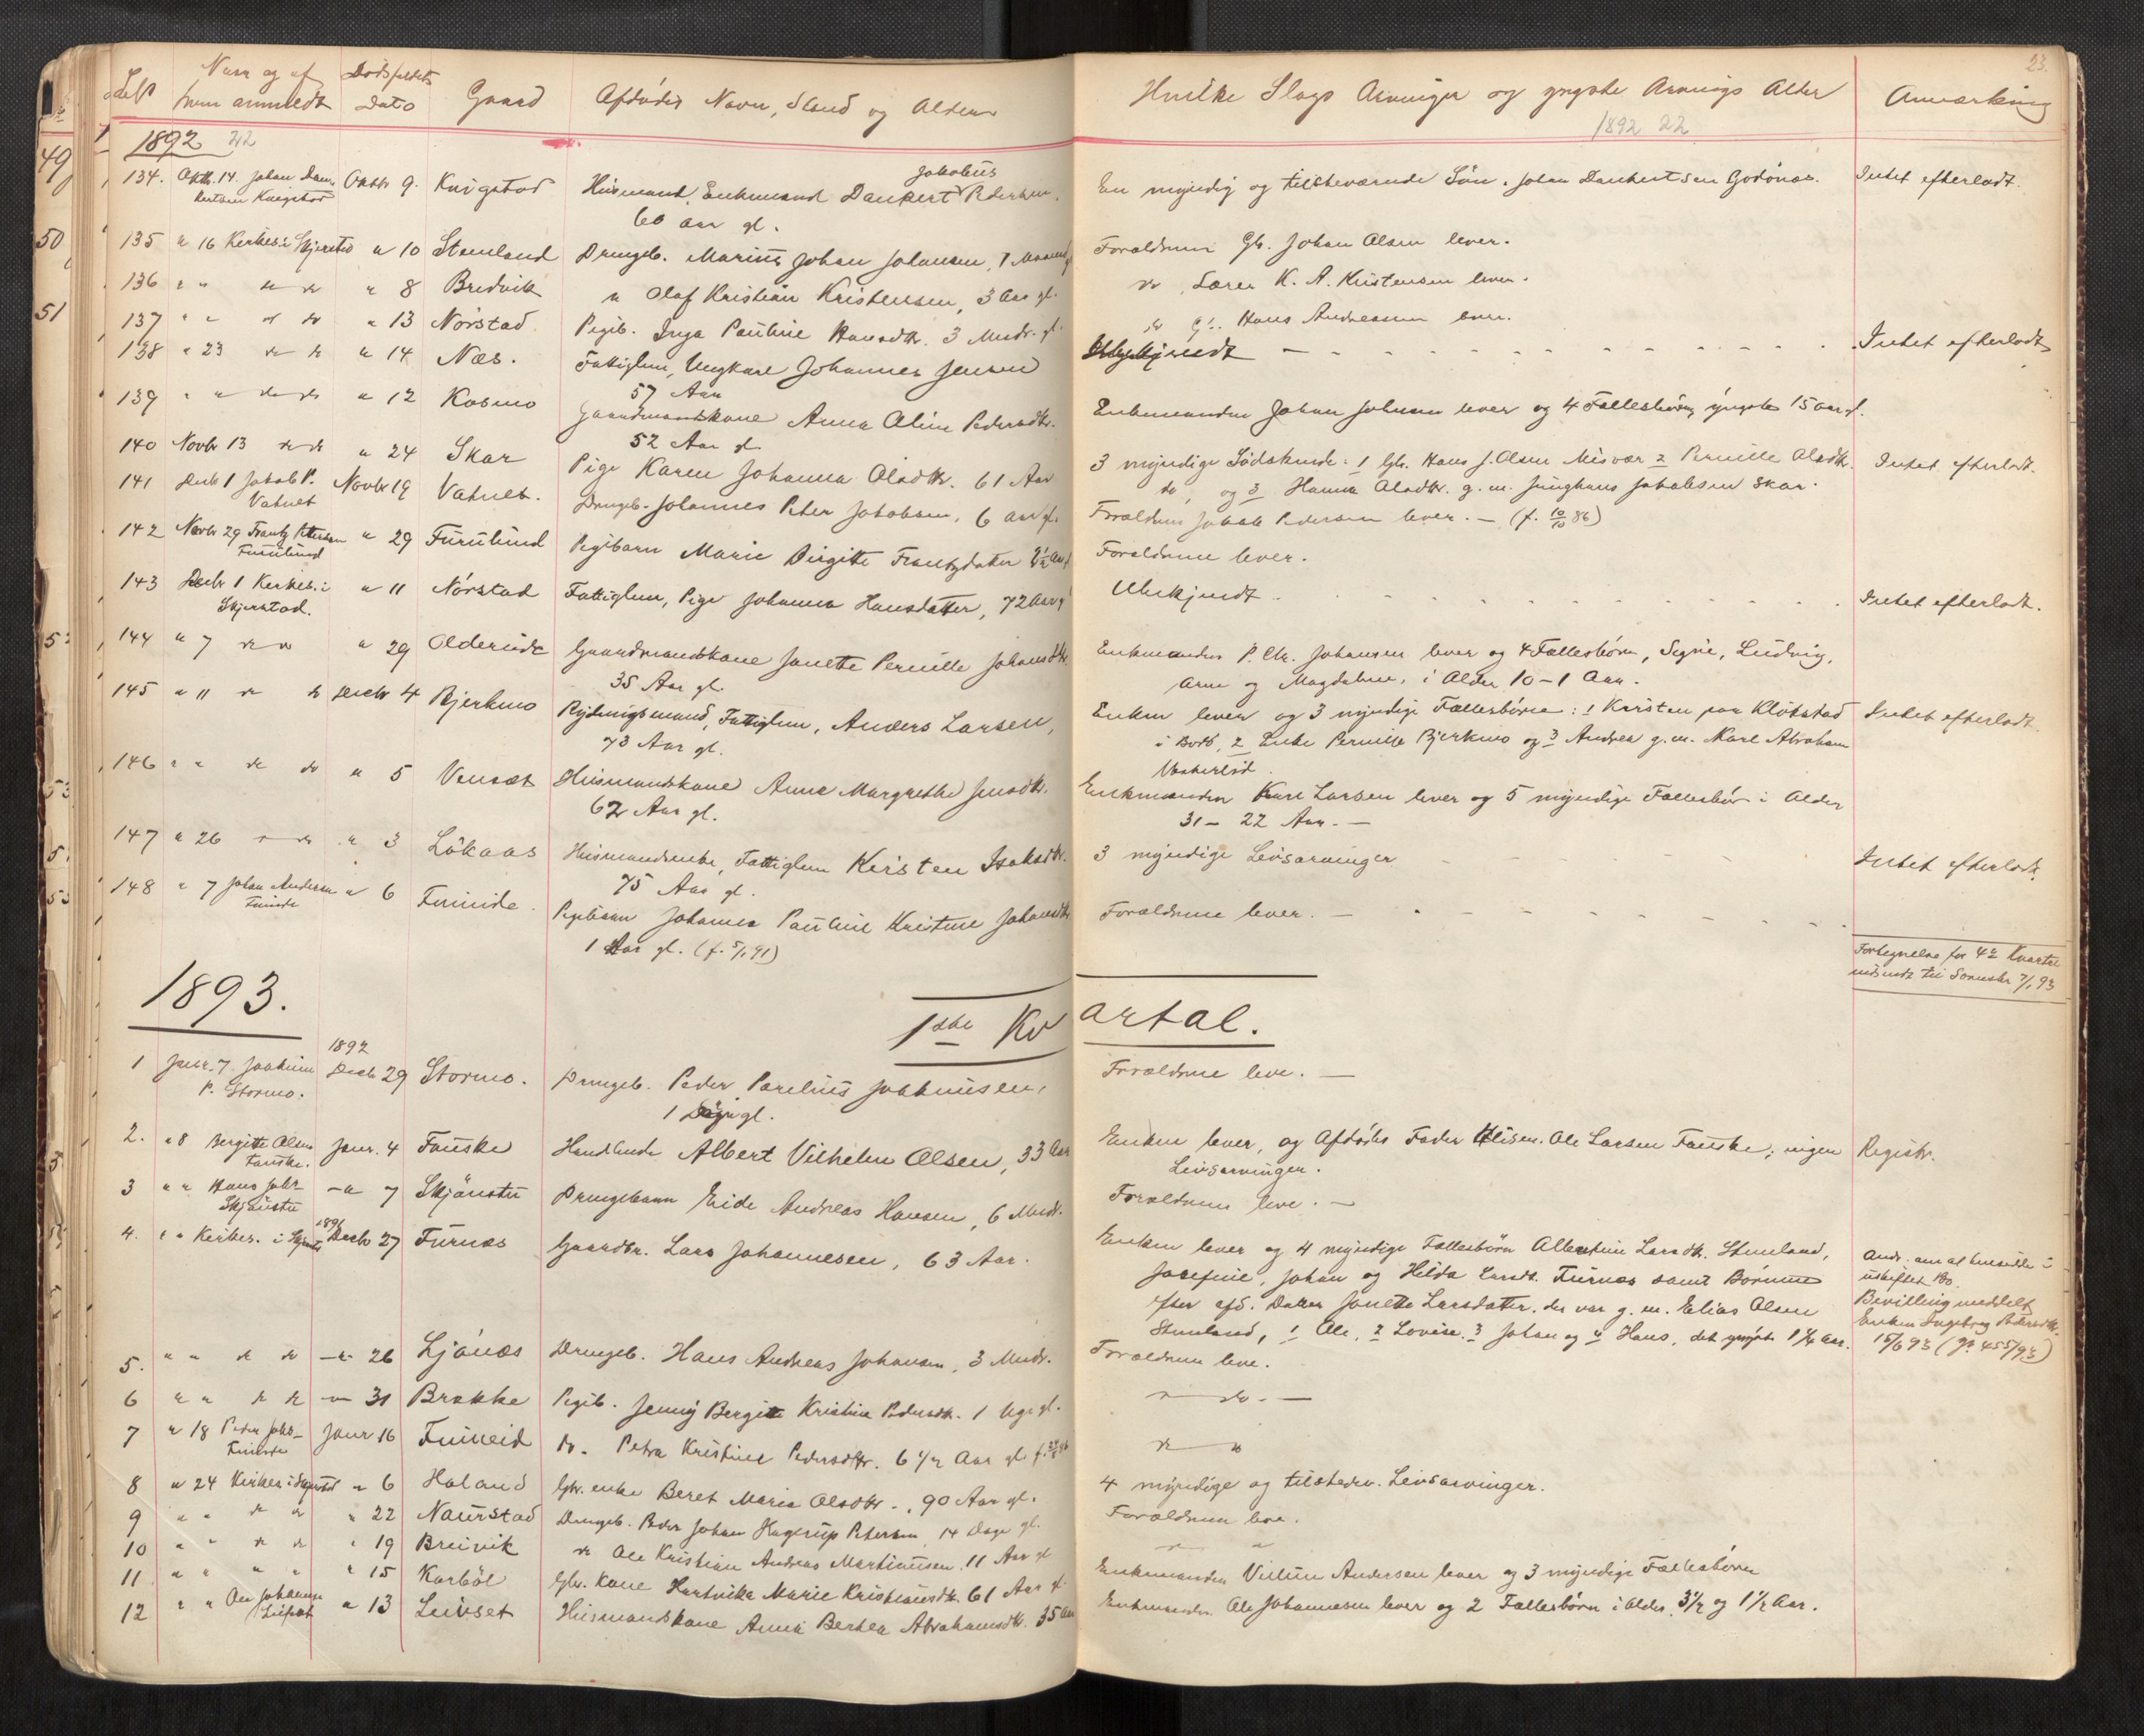 23.
Naar og af Dødsfaldets
hvem anmeldt Dato Gaard Afdødes Navn, Stand og Alder
Hvilke Slags Arvinger og yngste Arvings Alder Anmærkning
1892 22
1892 22
134. Oktb. 14. Johan Dan- Oktbr 9. Kvigstad Husmand, Enkemand Dankert Jakobus Pedersen, En myndig og tilstedeværende Søn, Johan Dankertsen Godønæs. Intet efterladt.
kertsen Kvigstad 60 aar gl.
135 " 16 Kirkes. i Skjerstad " 10 Stemland Drengeb. Marius Johan Johansen, 7 Maaned gl. Forældrene Gb. Johan Olsen lever.
136 " " do do " 8 Bredvik " Olaf Kristian Kristensen, 3 Aar gl. do, Lærer K. A. Kristensen lever.
137 " " do do " 13 Nørstad Pigeb. Inga Pauline Hansdtr. 3 Mndr. gl. do Gb. Hans Andreassen lever.
138 " 23 do do " 14 Næs. Fattiglem, Ungkarl Johannes Jensen Ubekjendt Intet efterladt
57 Aar
139 " " do do " 12 Kosmo Gaardmandskone Anna Oline Pedersdtr. Enkemanden Johan Johnsen lever og 4 Fællesbørn, yngste 15 aar gl.
52 Aar gl
140 Novbr 13 do do " 24 Skar Pige Karen Johanna Olsdtr. 61 Aar 3 myndige Sødskende: 1 Gb. Hans J. Olsen Misvær 2 Pernille Olsdtr. Intet efterladt.
do, og 3 Hanna Olsdtr. g. m. Junghans Jakobsen Skar.
141 Decb 1 Jakob P. Novbr 19 Vatnet. Drengeb. Johannes Peter Jakobsen, 6 aar gl. Forældrene Jakob Pedersen lever. - (f. 10/10 86)
Vatnet
142 Novbr 29 Frantz Petersen " 29 Furulund Pigebarn Marie Birgitte Frantzdatter 2½ Aar Forældrene lever.
Furulund
143 Decbr 1 Kirkes. i " 11 Nørstad Fattiglem, Pige Johanna Hansdatter, 72 Aar gl Ubekjendt. Intet efterladt.
Skjerstad.
144 " 7 do do " 29 Oldereide Gaardmandskone Janette Pernille Johansdtr. Enkemanden P. Chr. Johansen lever og 4 Fællesbørn, Signe, Ludvig,
35 Aar gl. Arne og Magdalene, i Alder 10-1 Aar.
145 " 11 do do Decbr 4 Bjerkmo Rydningsmand, Fattiglem, Anders Larsen, Enken lever og 3 myndige Fællesbørn: 1 Karsten paa Kløkstad Intet efterladt.
73 Aar gl. i Bodø, 2 Enke Pernille Bjerkmo og 3 Andrea g. m. Karl Abraham
146 " " do do " 5 Venset Husmandskone Anne Margrethe Jensdtr. Enkemanden Kare Larsen lever og 5 myndige Fællesbørn i Alder
62 Aar gl. 31 - 22 Aar. -
147 " 26 do " 3 Løkaas Husmandsenke, Fattiglem Kirsten Isaksdtr. 3 myndige Livsarvinger Intet efterladt.
75 Aar gl.
148 " 7 Johan Andersen " 6 Funnide. Pigebarn Johanna Pauline Kristine Johansdtr Forældrene lever. -
Funide 1 Aar gl. (f. 5/1 91)
Fortegnelse for 4de Kvartal
indsendt til Sorenskr 7/1 93
1893. 1ste Kvartal.
1892
1 Janr. 7 Joakim Decb 29 Stormo. Drengeb. Peder Parelius Joakimsen, Forældrene leve. -
P. Stormo. 1 Døgn gl.
2. " 8 Bergitte Olsen Janr. 4 Fauske Handlende Albert Vilhelm Olsen, 33 Aar Enken lever, og Afdødes Fader Klisen. Ole Larsen Fauske; ingen Registr.
Fauske. Livsarvinger.
3 " " Hans Johs- " 7 Skjånstu Drengebarn Eide Andreas Hansen, 6 Mndr. Forældrene leve. -
Skjånstu
4. " " Kirkes. i Skjerstad Decbr 27 Furnæs Gaardbr. Lars Johannesen, 63 Aar. Enken lever og 4 myndige Fællesbørn Albertine Larsdtr. Stemland, Andr. om at hensidde i
Josefine, Johan og Hilda Larsdt. Furnæs samt Børnene uskiftet Bo.
efter afd. Datter Janette Larsdatter, der var g. m. Elias Olsen Bevilling meddelt
Stemland, 1 Ole, 2 Lovise, 3 Johan og 4 Hans, det yngste 1¼ Aar. Enken Ingeborg Pedersdtr.
15/6 93 (Jo 455/93)
5. " " do do " 26 Ljønæs Drengeb. Hans Andreas Johansen, 3 Mndr. Forældrene leve.
6 " " do do " 31 Brække Pigeb. Jenny Bergitte Kristine Pedersdtr. 1 Uge gl. " do. -
7 " 18 Peder Johs- Janr 16 Funneid Do. Petra Kristine Pedersdtr. 6½ Aar gl. do do
Funeide
8 " 24 Kirkes. i Skjerstad " 6 Haland Gbr. enke Beret Maria Olsdtr., 90 Aar gl. 4 myndige og tilstedev. Livsarvinger.
9 " " do do " 22 Naurstad Drengeb. Peder Johan Hagerup Petersen 14 Dage gl. Forældrene leve.
10 " " do do " 19 Breivik do Ole Kristian Andreas Martinussen. 11 Aar gl " "
11 " " " " " 15 Karbøl Gbr. Kone Hartvikka Marie Kristiansdtr. 61 Aar gl. Enkemanden Villum Andersen lever og 3 myndige Fællesbørn
12 " " Ole Johannes " 13 Leivset Husmandskone Anna Berhea Abrahamsdtr. 35 Aar Enkemanden Ole Johannesen lever og 2 Fællesbørn i Alder 3½ og 1½ Aar.